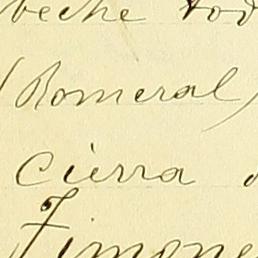 beche tod
(Romeral)
cierra d
Timone